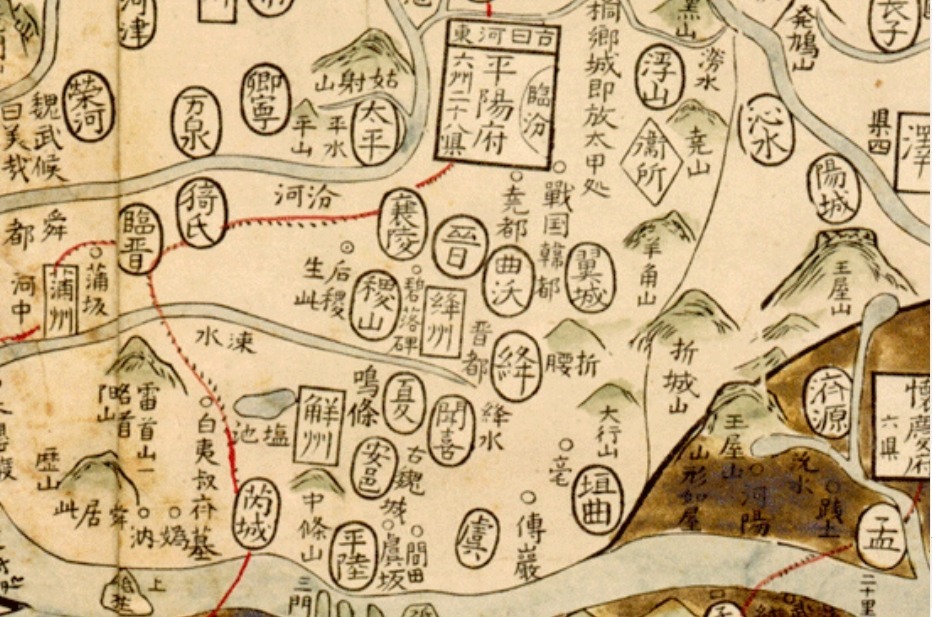 河津
榮河
魏武候
曰美哉
万泉
鄉寧
姑射山
平山
平水
太平
古曰河東
平陽府
六州二十八県
臨汾
橋鄉城即放太甲処
黒山
浮山
澇水
衛所
堯山
発鳩山
長子
沁水
県四
澤
陽城
王屋山
汾河
猗氏
臨晋
舜都
河中
蒲州
蒲坂
襄陵
堯都
戰国韓都
晉
曲沃
翼城
羊角山
后稷生此
稷山
碧落碑
絳州
晋都
絳
折腰
折城山
涑水
雷首山一
首山
白夷叔齐墓
塩池
解州
鳴條
夏
聞喜
絳水
大行山
安邑
古魏城
垣曲
亳
歷山
舜居此
媯汭
芮城
中條山
平陸
虞坂
間田
虞
傅巖
王屋山
山形如屋
河陽
沇水
践土
濟源
懷慶府
六県
孟
二十里
三門
上